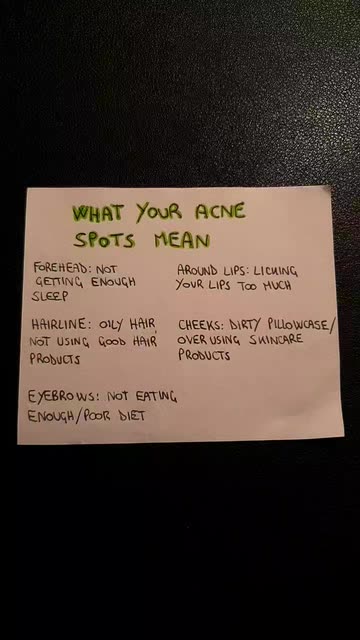 WHAT YOUR ACNE
SPOTS MEAN
FOREHEAD: NOT
GETTING ENOUGH
SLEEP
AROUND LIPS: LICKING
YOUR LIPS TOO MUCH
HAIRLINE: OILY HAIR,
NOT USING GOOD HAIR
PRODUCTS
CHEEKS: DIRTY PILLOWCASE/
OVER USING SKINCARE
PRODUCTS
EYEBROWS: NOT EATING
ENOUGH/POOR DIET